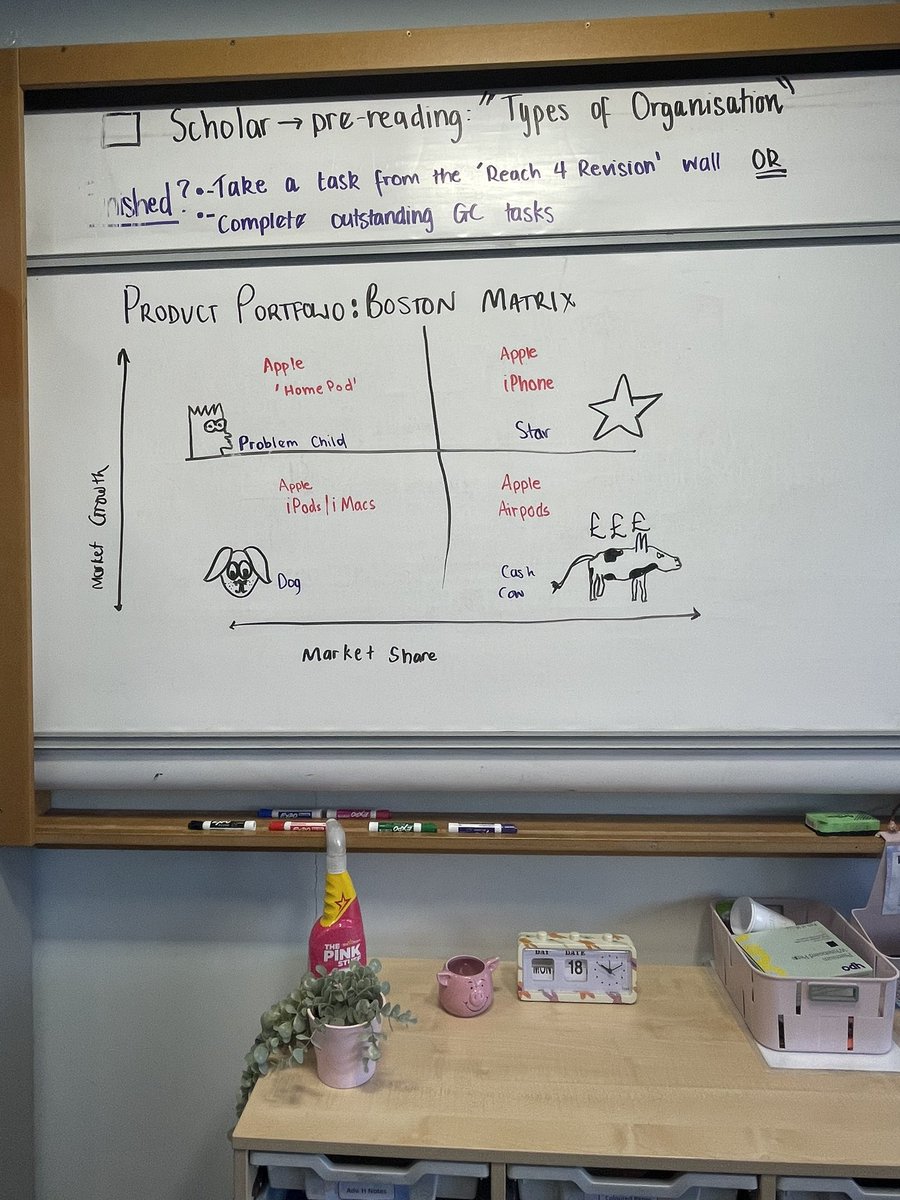 Scholar → pre-reading: "Types of Organisation"
nished? •-Take a task from the 'Reach 4 Revision' wall OR
•-Complete outstanding GC tasks
PRODUCT PORTFOLIO: BOSTON MATRIX
Apple
'HomePod'
Problem Child
Apple
iPhone
Star
Market Growth
Apple
iPods/iMacs
Dog
Apple
Airpods
£ £ £
Cash
Cow
Market Share
EXPO
THE
PINK
DAY DATE
MON 18
ypo
Adv.H Notes